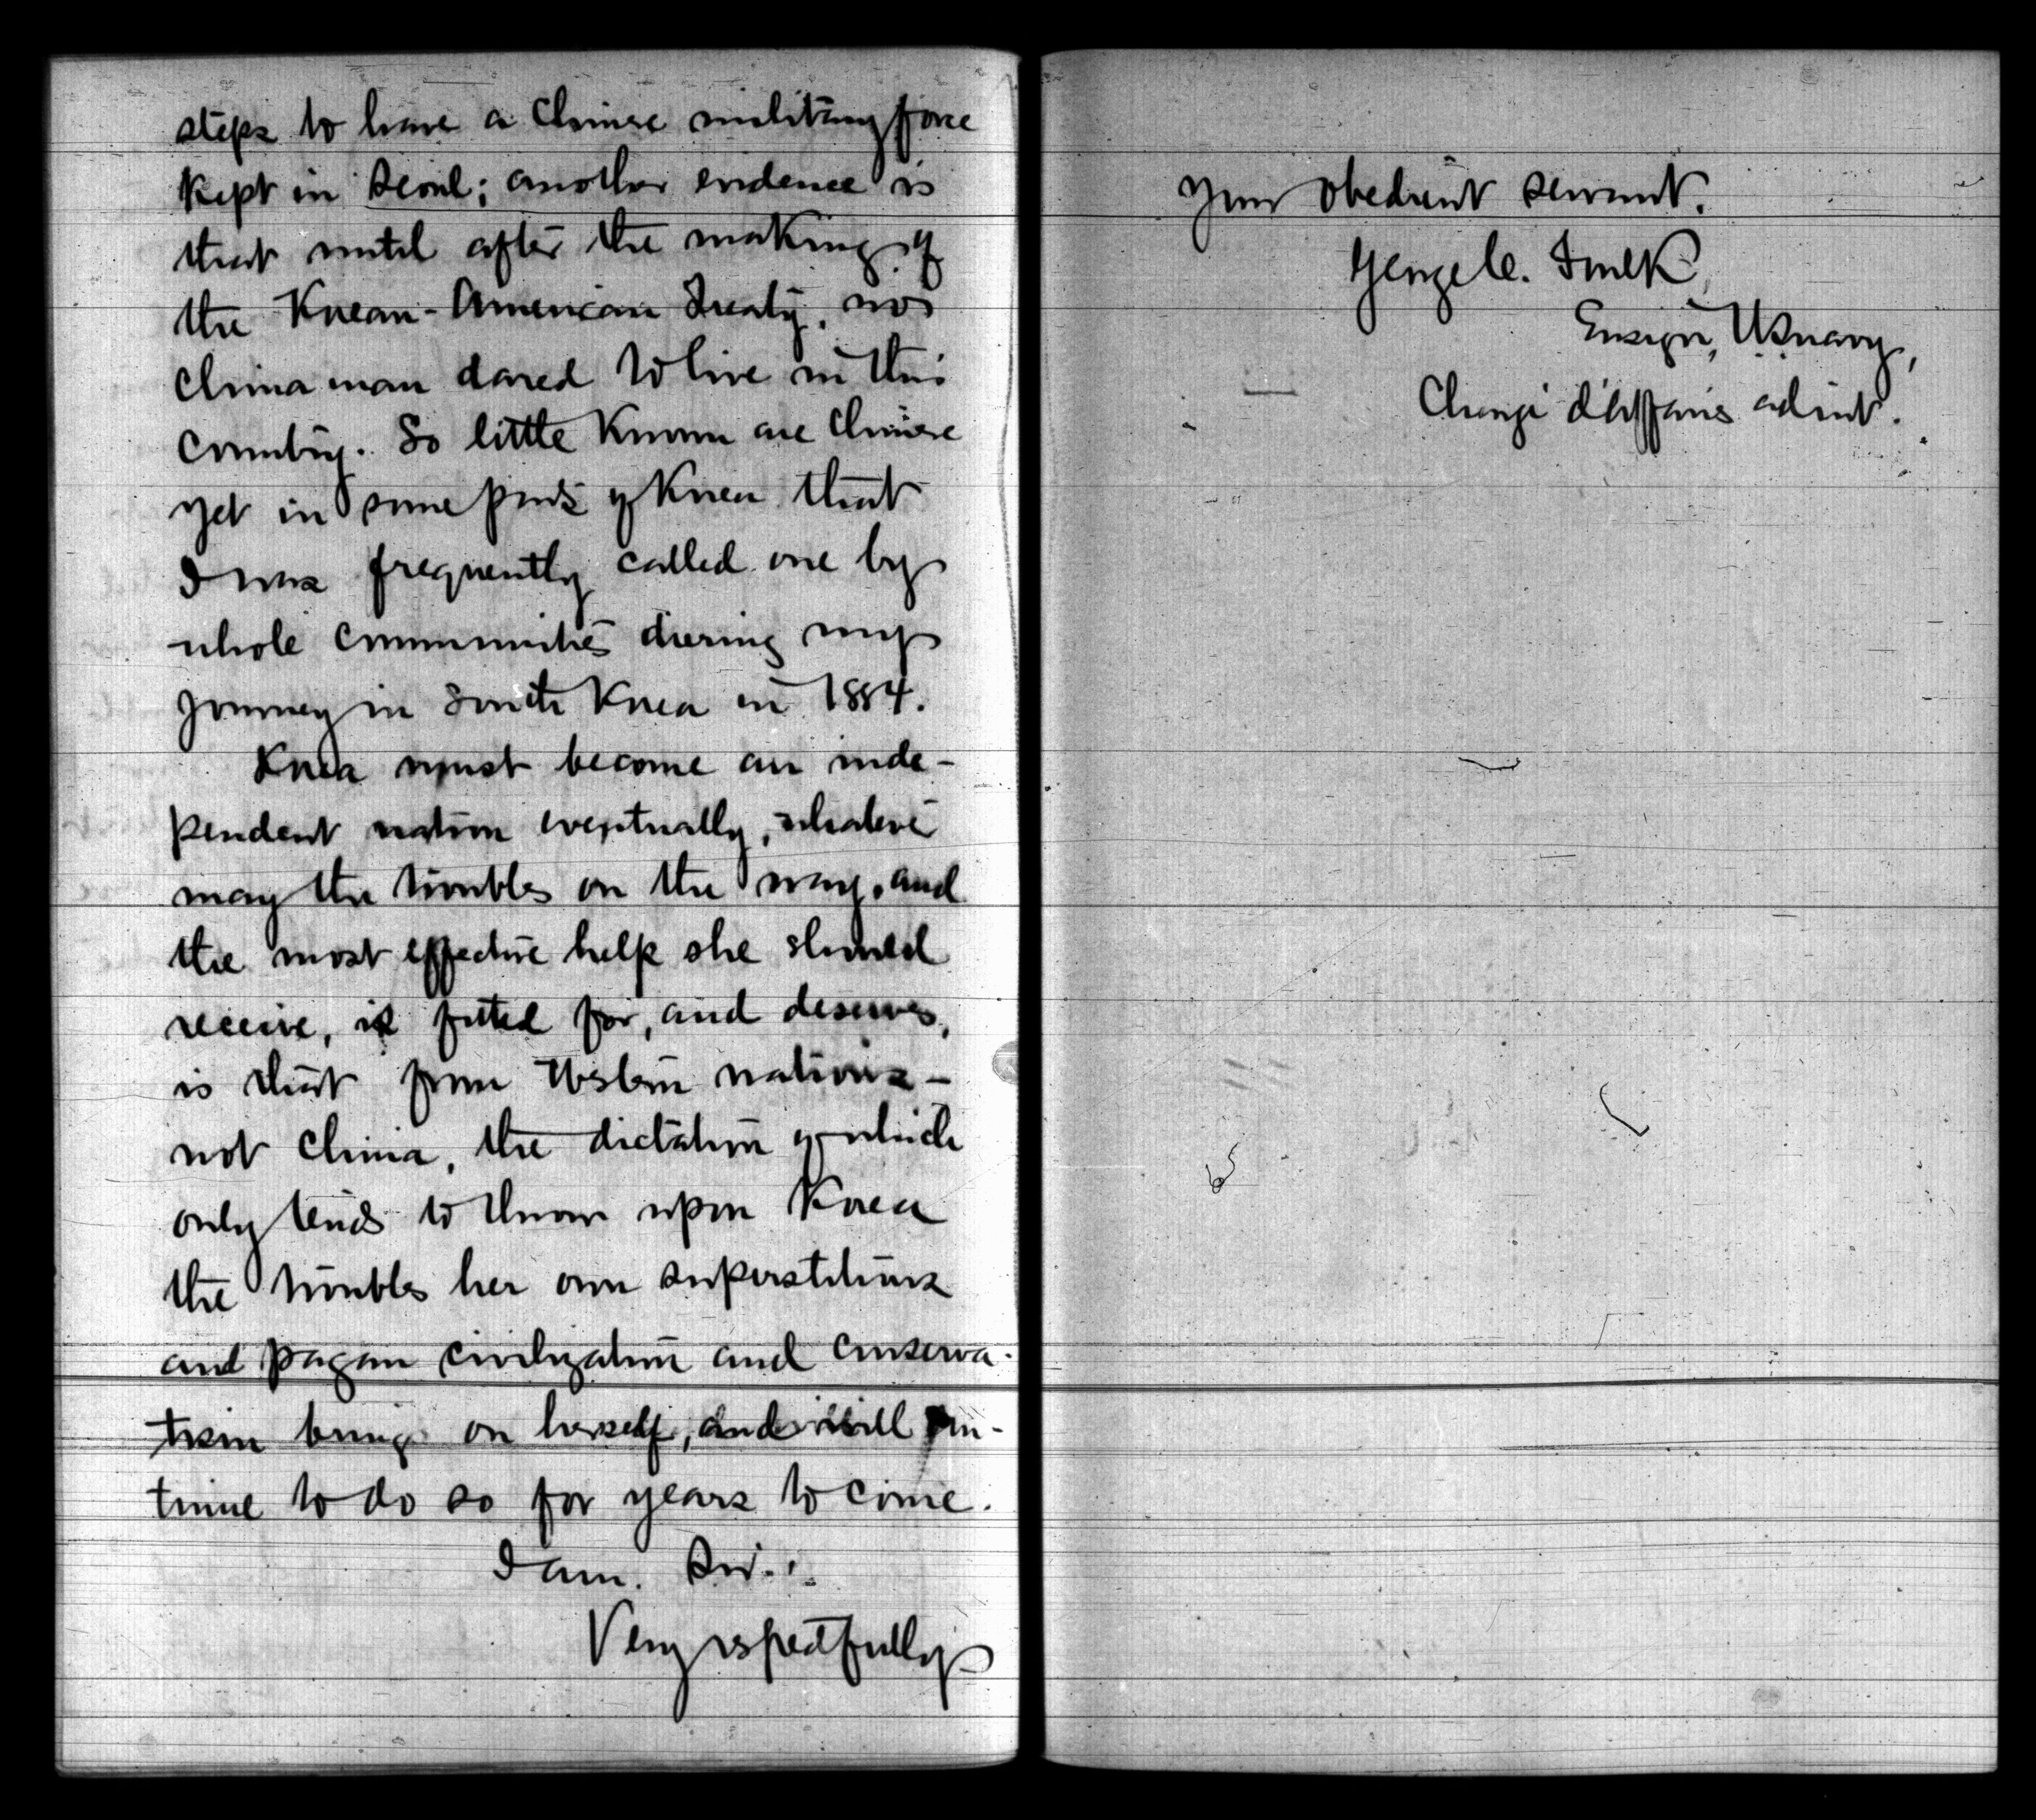 steps to have a Chinese military force
kept in Seoul; another evidence is
that until after the making of
the Korean-American Treaty, no
Chinaman dared to live in this
Country. So little known are Chinese
yet in some parts of Korea that
I was frequently called one by
whole communities during my
journey in South Korea in 1884.
Korea must become an inde-
pendent nation eventually, whatever
may the troubles on the way, and
the most effective help she should
receive, is fitted for, and deserves,
is that from Western nations-
not China, the dictation of which
only tends to throw upon Korea
the troubles her own superstitions
and pagan civilization and conserva-
tism brings on herself, and will con-
tinue to do so for years to come.
I am. Sir.
Very respectfully
your obedient servant.
George C. Foulk,
Ensign, U.S. navy,
Chargé d'Affaires ad int.